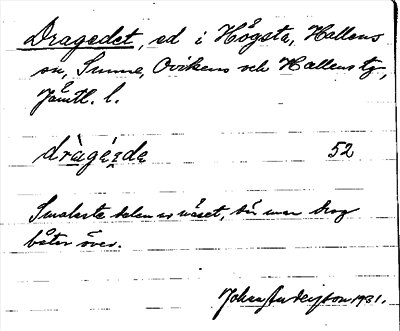 Dragedet, ed i Högsta, Hallens
sn, Sunne, Ovikens och Hallens tg,
Jämtl. l.
dràgé́ɪde 52
Smalaste delen av näset, där man drog
båtar över.
Johan Anderson 1931.